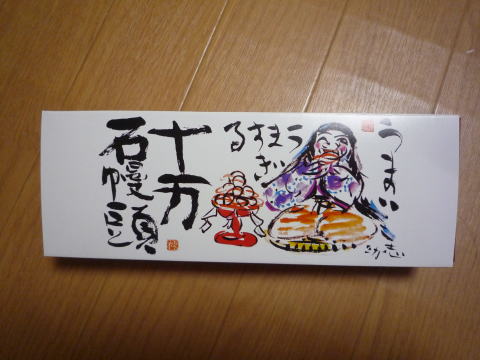 うまい
うますぎる
十万
石饅頭
志功